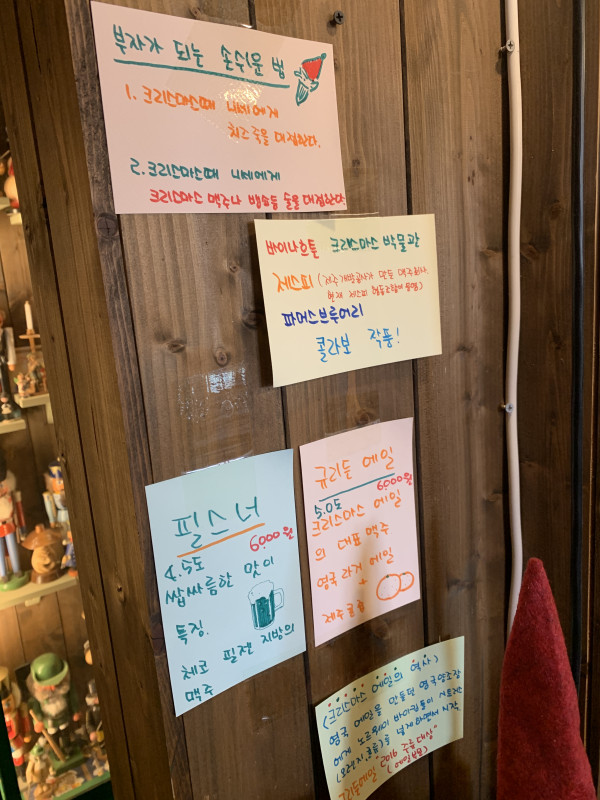 부자가 되는 손쉬운 법
1. 크리스마스때 니세에게
치즈죽을 대접한다.
2. 크리스마스때 니세에게
크리스마스 맥주나 뱅쇼등 술을 대접한다.
바이나흐튼 크리스마스 박물관
제스피 (제주개발공사가 만든 맥주회사.
현재 제스피
파머스브루어리
콜라보 작품!
필스너
6.000원
4.5도
쌉싸름한 맛이
특징.
체코 필젠 지방의
맥주
규리든 에일
6.000원
5.0도
크리스마스 에일
의 대표 맥주
영국 과거 에일
+
제주 귤
(크리스마스 에일의 역사)
영국 에일을 만들던 영국양조장
에게 노르웨이 바이킹들이
(오렌지,)를 넣게 하면서 시작
규리든에일 "2016 주류대상"